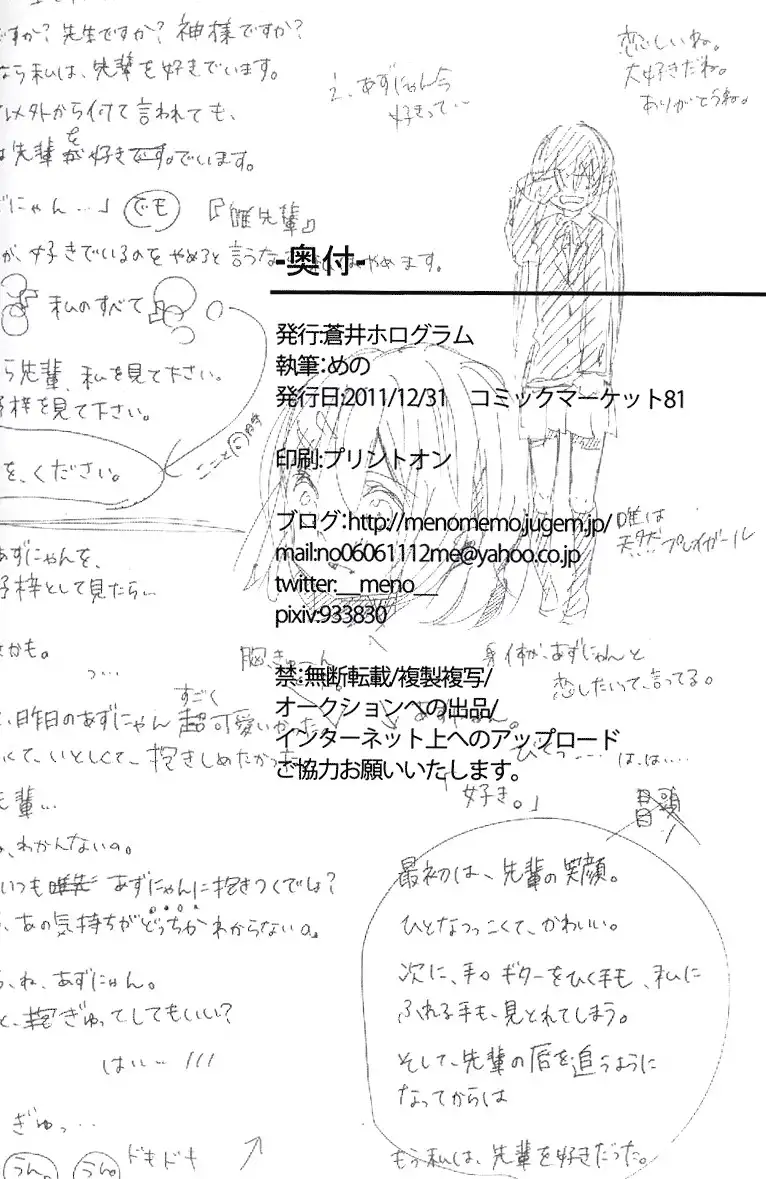 ですか？先生ですか？神様ですか？
なら私は、先輩を好きでいます。
以外から何て言われても、
は先輩を好きでいます。
にゃん…」でも『唯先輩』
が、好きでいるのをやめろと言うなら
やめます。
私のすべて
ら先輩、私を見て下さい。
梓を見て下さい。
を、ください。
ここと同時
あずにゃんを、
子梓として見たら…
かも。
っ…
すごく
、昨日のあずにゃん超可愛いかった
くて、いとしくて、抱きしめたかった
先輩…
、わかんないの。
いつも あずにゃんに抱きつくでしょ？
、あの気持ちがどっちかわからないの。
、ね、あずにゃん。
と、ぎゅってしてもいい？
はい…
ぎゅっ…
うん。
うん。
ドキドキ
あずにゃん今
好きって…
恋しいね。
大好きだね。
ありがとうね。
-奥付-
発行:蒼井ホログラム
執筆:めの
発行日:2011/12/31　コミックマーケット81
印刷:プリントオン
ブログ:http://menomemo.jugem.jp/
mail:no06061112me@yahoo.co.jp
twitter:__meno__
pixiv:933830
禁:無断転載/複製複写/
オークションへの出品/
インターネット上へのアップロード
ご協力お願いいたします。
唯は
天然プレイガール
胸、きゅーん
身体が、あずにゃんと
恋したいって、言ってる。
は、は…
「好き。」
最初は、先輩の笑顔。
ひとなつっこくて、かわいい。
次に、手。ギターをひく手も、私に
ふれる手も、見とれてしまう。
そして、先輩の唇を追うように
なってからは
もう私は、先輩を好きだった。